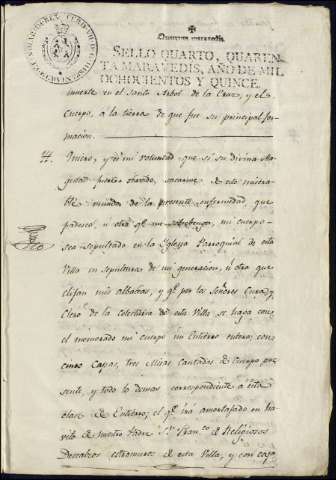 Quarenta maravedis.
SELLO QUARTO, QUAREN-
TA MARAVEDIS, AÑO DE MIL
OCHOCIENTOS Y QUINCE.
muerte en el Santo Arbol de la Cruz, y el
Cuerpo, á la tierra de que fue su principal for-
macion.
Quiero, y es mi voluntad que si su divina Ma-
gestad fuere servido, sacarme de este misera-
ble mundo de la presente enfermedad que
padezco, ú otra qe. me sobrevenga, mi cuerpo
sea sepultado en la Yglesia Parroquial de esta
Villa en sepultura de mi generacion, ú otra que
elijan mis albaceas, y qe. por los Señores Cura, y
Clero de la Colecturia de esta Villa se haga con
el memorado mi cuerpo un Entierro entero, con
cinco Capas, tres Misas Cantadas de Cuerpo pre-
sente, y todo lo demas correspondiente á esta
clase de Entierro; el qe. irá amortajado en ha-
vito de nuestro Padre Sn. Franco. de Religiosos
Descalzos extramuros de esta Villa, y con